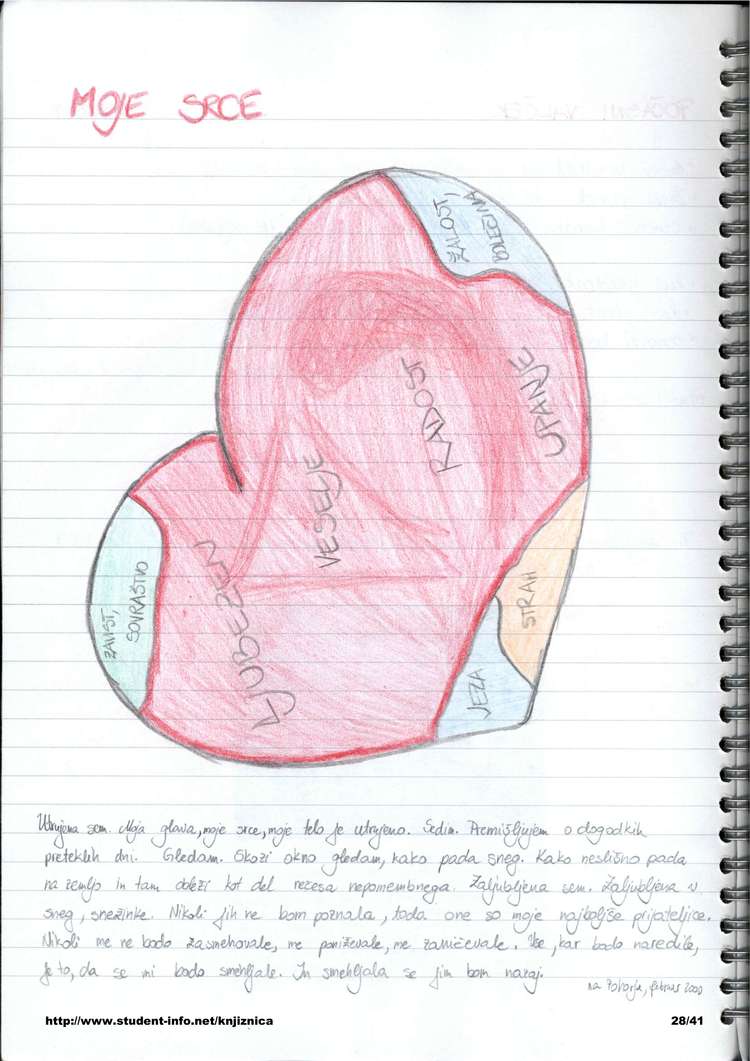 MOJE SRCE
ŽALOST,
BOLEČINA
UPANJE
RADOST
VESELJE
LJUBEZEN
ZAVIST,
SOVRAŠTVO
STRAH
JEZA
Utrujena sem. Moja glava, moje srce, moje telo je utrujeno. Sedim. Premišljujem o dogodkih
preteklih dni. Gledam. Skozi okno gledam, kako pada sneg. Kako neslišno pada
na zemljo in tam obleži kot del nečesa nepomembnega. Zaljubljena sem. Zaljubljena v
sneg, snežinke. Nikoli jih ne bom poznala, toda one so moje najboljše prijateljice.
Nikoli me ne bodo zasmehovale, me poniževale, me zaničevale. Vse, kar bodo naredile,
je to, da se mi bodo smehljale. In smehljala se jim bom nazaj.
na Pohorju, februar
http://www.student-info.net/knjiznica
28/41